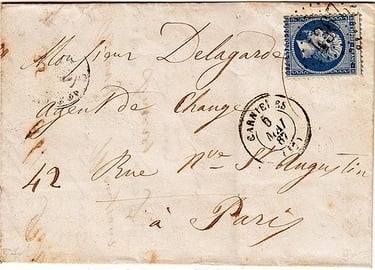 Monsieur Delagarde
Agent de Change
42 Rue Nve St Augustin
à Paris
GARNIERES
6
MAI
67